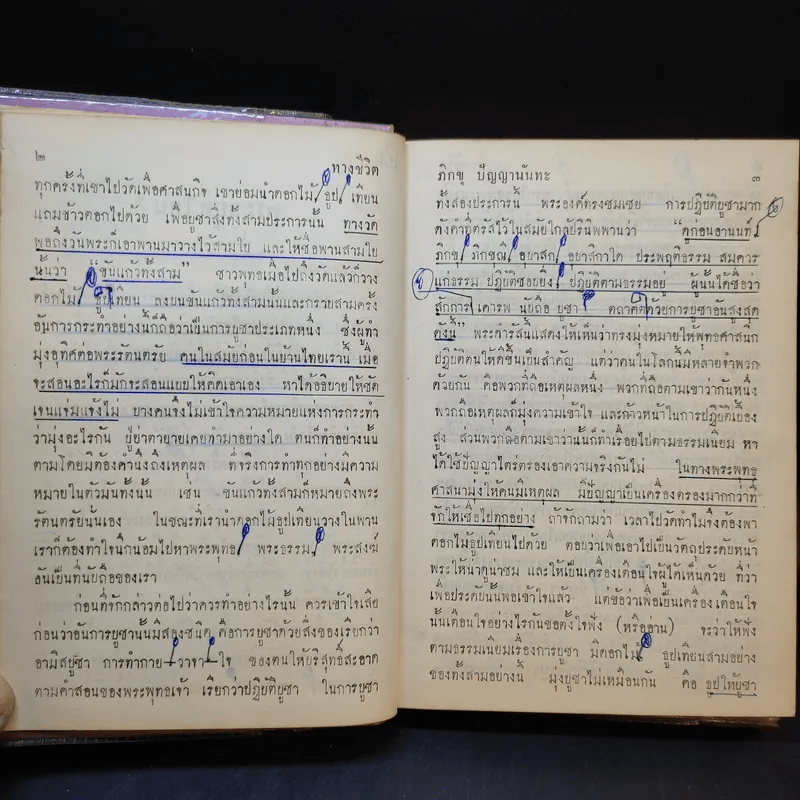 ๒
ทางชีวิต
ทุกครั้งที่เขาไปวัดเพื่อศาสนกิจ เขาย่อมนำดอกไม้ ธูป เทียน
แถมข้าวตอกไปด้วย เพื่อบูชาสิ่งทั้งสามประการนั้น ทางวัด
พอถึงวันพระก็เอาพานมาวางไว้สามใบ และให้ชื่อพานสามใบ
นั้นว่า “ขันแก้วทั้งสาม” ชาวพุทธเมื่อไปถึงวัดแล้วก็วาง
ดอกไม้ ธูปเทียน ลงบนขันแก้วทั้งสามนั้นและกราบสามครั้ง
อันการกระทำอย่างนี้ก็ถือว่าเป็นการบูชาประเภทหนึ่ง ซึ่งผู้ทำ
มุ่งอุทิศต่อพระรัตนตรัย คนในสมัยก่อนในบ้านไทยเรานี้ เมื่อ
จะสอนอะไรก็มักจะสอนแยบให้คิดเอาเอง หาได้อธิบายให้ชัด
เจนแจ่มแจ้งไม่ บางคนจึงไม่เข้าใจความหมายแห่งการกระทำ
ว่ามุ่งอะไรกัน ปู่ย่าตายายเคยทำมาอย่างใด ตนก็ทำอย่างนั้น
ตามโดยมิต้องคำนึงถึงเหตุผล ที่จริงการทำทุกอย่างมีความ
หมายในตัวมันทั้งนั้น เช่น ขันแก้วทั้งสามก็หมายถึงพระ
รัตนตรัยนั่นเอง ในขณะที่เรานำดอกไม้ธูปเทียนวางในพาน
เราก็ต้องทำใจนึกน้อมไปหาพระพุทธ พระธรรม พระสงฆ์
อันเป็นที่นับถือของเรา
ก่อนที่จักกล่าวต่อไปว่าควรทำอย่างไรนั้น ควรเข้าใจเสีย
ก่อนว่าอันการบูชานั้นมีสองชนิด คือการบูชาด้วยสิ่งของเรียกว่า
อามิสบูชา การทำกาย วาจา ใจ ของตนให้บริสุทธิ์สะอาด
ตามคำสอนของพระพุทธเจ้า เรียกว่าปฏิบัติบูชา ในการบูชา
ภิกขุ ปัญญานันทะ
๓
ทั้งสองประการนี้ พระองค์ทรงชมเชย การปฏิบัติบูชามาก
ดังคำที่ตรัสไว้ในสมัยใกล้ปรินิพพานว่า “ดูก่อนอานนท์
ภิกขุ ภิกขุณี อุบาสก อุบาสิกาใด ประพฤติธรรม สมควร
แก่ธรรม ปฏิบัติชอบยิ่ง ปฏิบัติตามธรรมอยู่ ผู้นั้นได้ชื่อว่า
สักการ เคารพ นับถือ บูชา ตถาคตด้วยการบูชาอันสูงสุด
ดังนี้” พระดำรัสนี้แสดงให้เห็นว่าทรงมุ่งหมายให้พุทธศาสนิก
ปฏิบัติตนให้ดีขึ้นเป็นสำคัญ แต่ว่าคนในโลกนี้มีหลายจำพวก
ด้วยกัน คือพวกที่ถือเหตุผลหนึ่ง พวกที่ถือตามเขาว่ากันหนึ่ง
พวกถือเหตุผลก็มุ่งความเข้าใจ และก้าวหน้าในการปฏิบัติเบื้อง
สูง ส่วนพวกถือตามเขาว่านั้นก็ทำเรื่อยไปตามธรรมเนียม หา
ได้ใช้ปัญญาไตร่ตรองเอาความจริงกันไม่ ในทางพระพุทธ
ศาสนามุ่งให้คนมีเหตุผล มีปัญญาเป็นเครื่องตรองมากกว่าที่
จักให้เชื่อไปทุกอย่าง ถ้าจักถามว่า เวลาไปวัดทำไมจึงต้องพา
ดอกไม้ธูปเทียนไปด้วย ตอบว่าเพื่อเอาไปเป็นวัตถุประดับหน้า
พระให้น่าดูน่าชม และให้เป็นเครื่องเตือนใจผู้ได้เห็นด้วย ที่ว่า
เพื่อประดับนั้นพอเข้าใจแล้ว แต่ข้อว่าเพื่อเป็นเครื่องเตือนใจ
นั้นเตือนใจอย่างไรกันขอตั้งใจฟัง (หรืออ่าน) จะว่าให้ฟัง
ตามธรรมเนียมเรื่องการบูชา มีดอกไม้ ธูปเทียนสามอย่าง
ของทั้งสามอย่างนี้ มุ่งบูชาไม่เหมือนกัน คือ ธูปให้บูชา